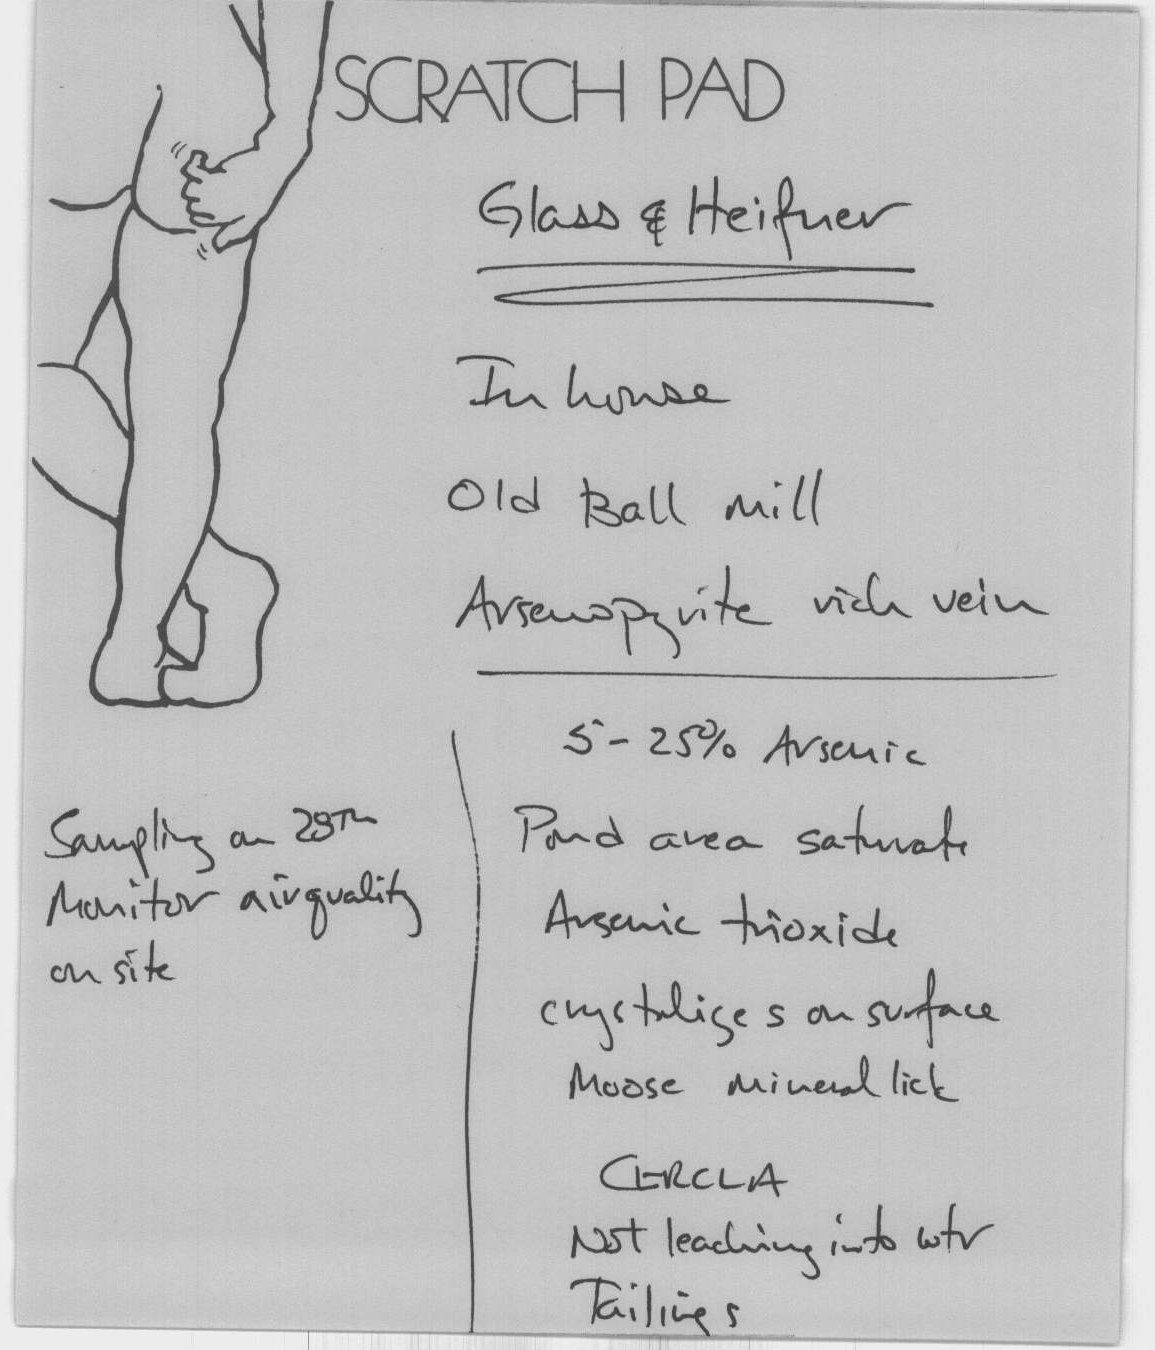 SCRATCH PAD
Glass & Heifner
In house
Old Ball mill
Arsenopyrite rich vein
5-25% Arsenic
Pond area saturate
Arsenic trioxide
crystalizes on surface
Moose mineral lick
CERCLA
Not leaching into wtr
Tailings
Sampling on 28Th
Monitor air quality
on site